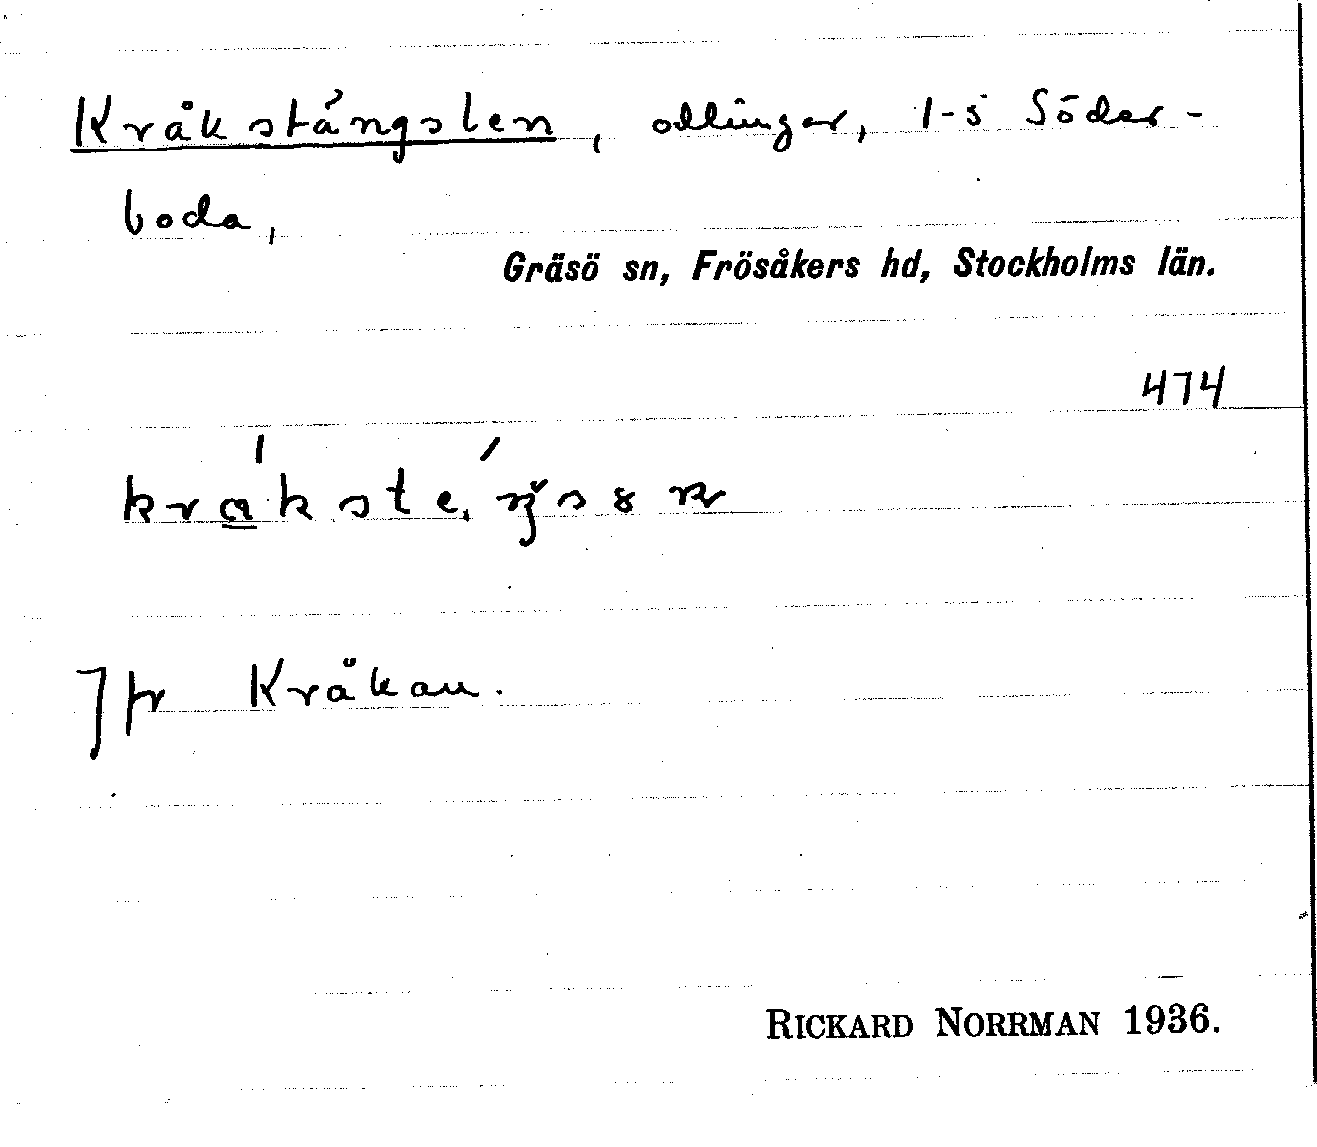 Kråkstångslen, odlingar, 1-5 Söder-
boda,
Gräsö sn, Frösåkers hd, Stockholms län.
474
Jfr Kråkan.
RICKARD NORRMAN 1936.